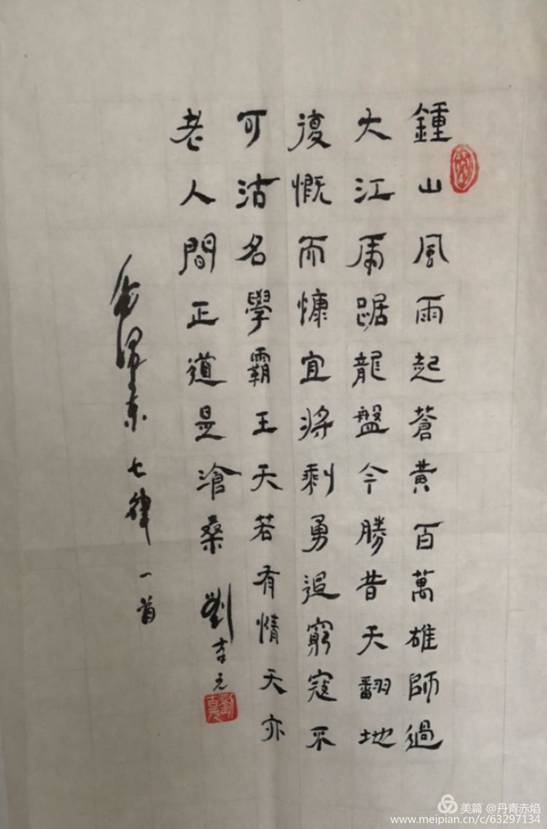 鍾山風雨起蒼黃百萬雄師過
大江虎踞龍盤今勝昔天翻地
復慨而慷宜將剩勇追窮寇不
可沽名學霸王天若有情天亦
老人間正道是滄桑
劉李元
毛澤東七律一首
美篇@丹青赤焰
www.meipian.cn/c/63297134